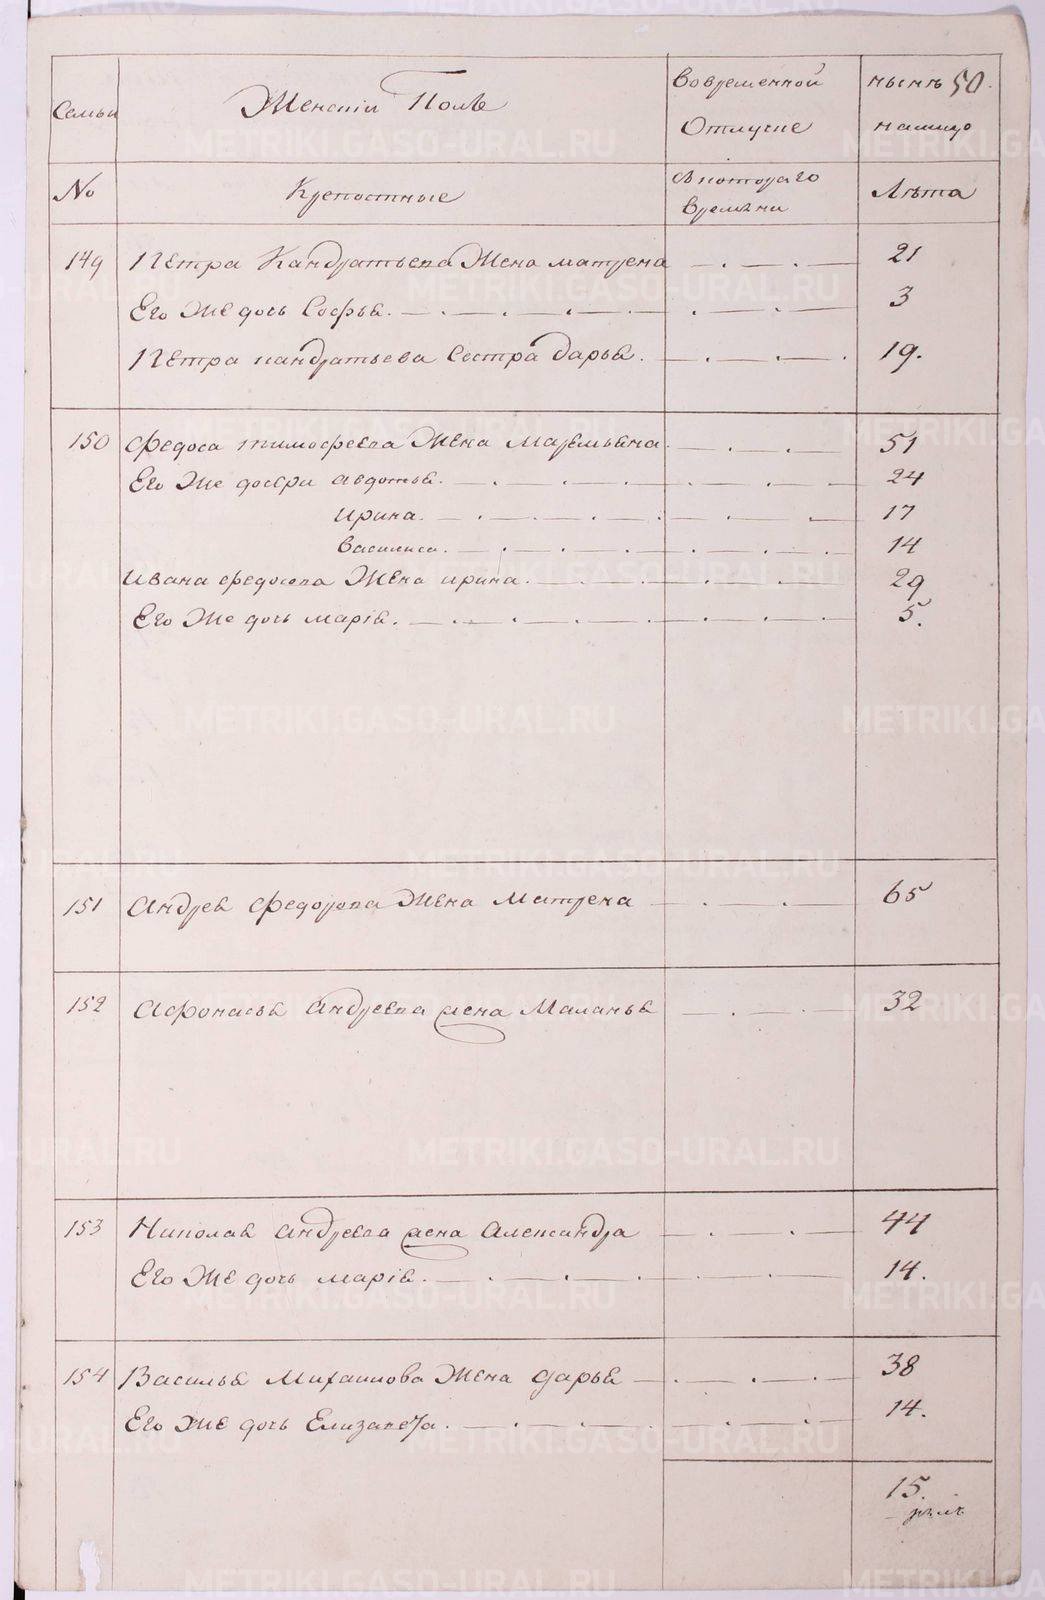 Семьи
Женскiй Полъ
Во временной
Отлучке
нынѣ 50.
на лицо
No
Крепостные
С котораго
времѣни
Лѣта
149 Петра Кандратьева Жена матрена 21
Его Же дочь Софья. 3
Петра кандратьева Сестра дарья. 19.
150 Федоса тимофеева Жена Маремьяна. 51
Его Же дочери авдотья. 24
ирина. 17
василиса. 14
ивана федосова Жена ирина. 29
Его Же дочь марiя. 5.
151 Андрея Федорова Жена Матрена 65
152 Афонасья андреева жена Маланья 32
153 Николая андреева жена александра 44
Его Же дочь марiя. 14.
154 Василья Михаилова Жена дарья 38
Его Же дочь Елизавета. 14.
15.
METRIKI.GASO-URAL.RU